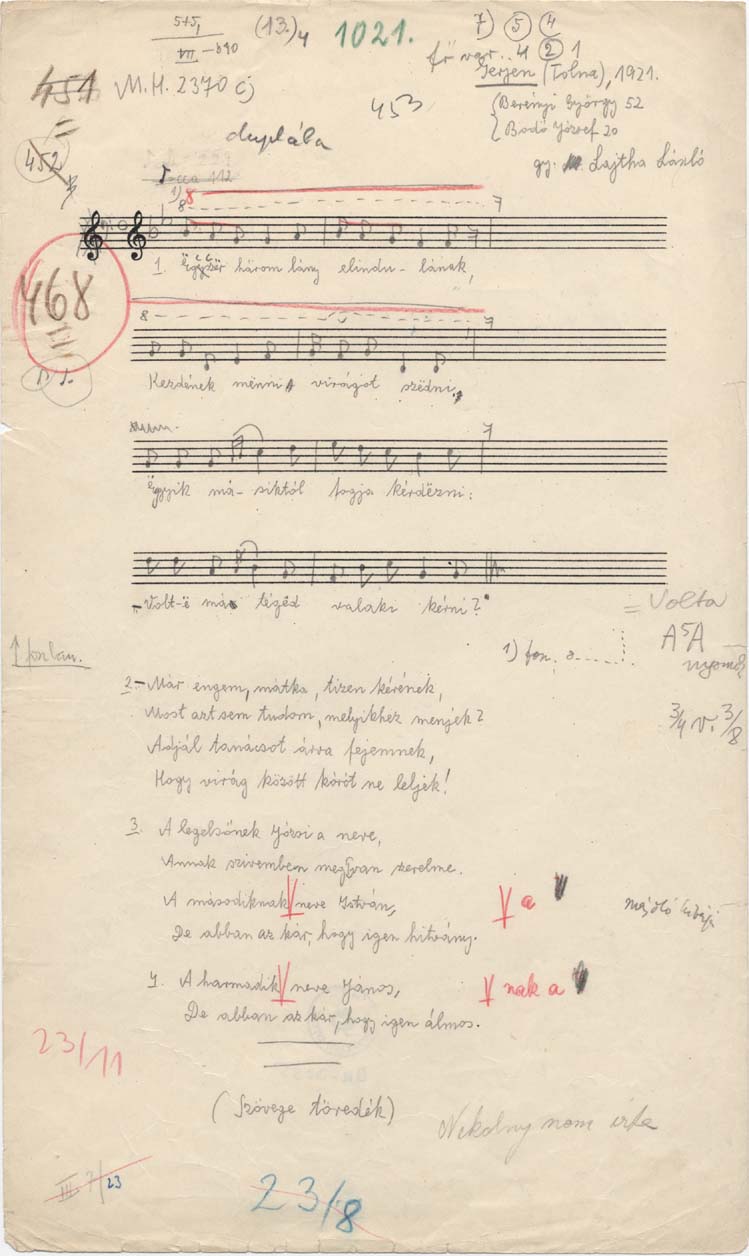 5+5,
(13.)4
1021.
7) 5 4
VII —
fő var.. 4 2 1
451 M.H. 2370 c)
Gerjen (Tolna), 1921.
453
Berényi György 52
Bodó József 20
452
duplába
gy. Lajtha László
♪ = cca 112
1) 8
8 7
1. Ëgyszër három lány elindu-lának,
468
8 7
Kezdének mënni virágot szëdni,
7
Ëgyik má-siktól fogja kérdëzni:
„Volt-ë má tégëd valaki kérni?"
= Volta
1) fon.
A⁵A
2. – Már engem, mátka, tizen kérének,
Most azt sem tudom, melyikhez menjek?
3/4 v. 3/8
Adjál tanácsot árva fejemnek,
Hogy virág között kórót ne leljek!
3. A legelsőnek Józsi a neve,
Annak szivemben megvan szerelme.
A másodiknak V neve István,
V a
De abban az kár, hogy igen hitvány.
4. A harmadik V neve János,
V nak a
De abban az kár, hogy igen álmos.
23/11
(Szövege töredék)
III 7/23
23/8